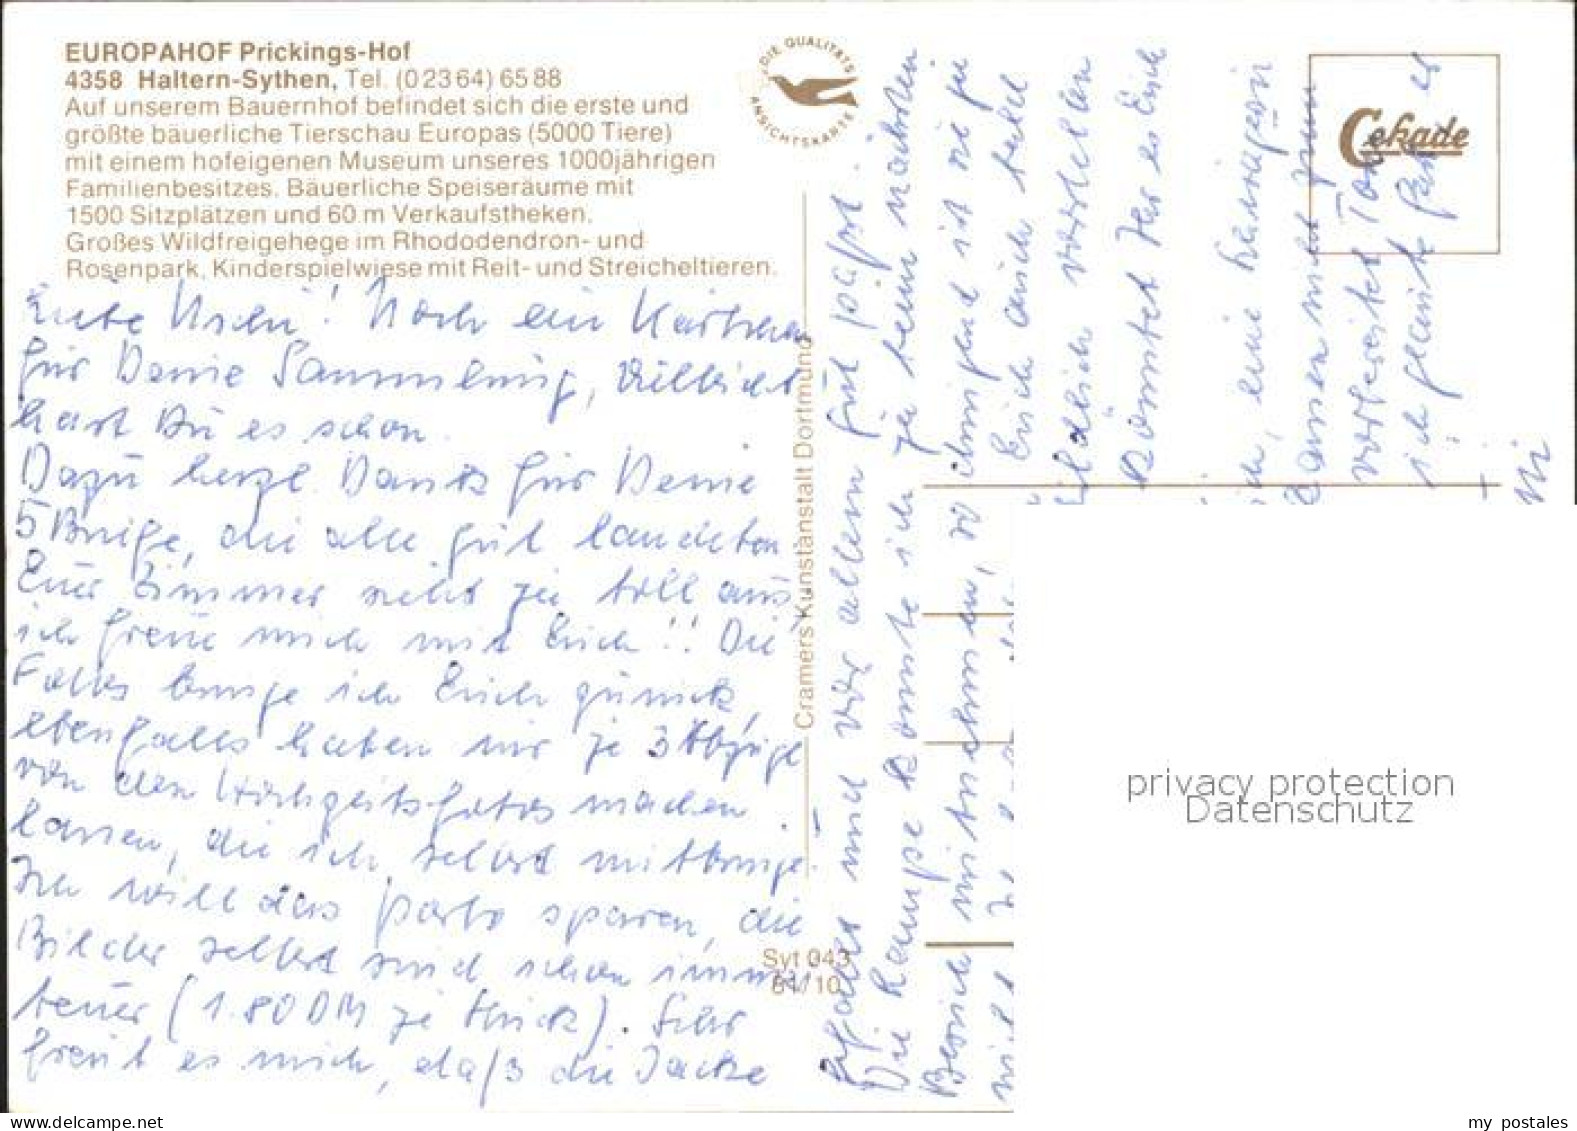 EUROPAHOF Prickings-Hof
4358 Haltern-Sythen, Tel. (02364) 6588
Auf unserem Bauernhof befindet sich die erste und
größte bäuerliche Tierschau Europas (5000 Tiere)
mit einem hofeigenen Museum unseres 1000jährigen
Familienbesitzes. Bäuerliche Speiseräume mit
1500 Sitzplätzen und 60 m Verkaufstheken.
Großes Wildfreigehege im Rhododendron- und
Rosenpark. Kinderspielwiese mit Reit- und Streicheltieren.
DIE QUALITÄTS
ANSICHTSKARTE
Cekade
Liebe Uschi! Noch ein Kärtchen
für Deine Sammlung, vielleicht
hast Du es schon.
Dazu herzl. Dank für Deine
5 Briefe, die alle gut landeten
Euer Zimmer sieht ja toll aus,
ich freue mich mit Euch!! Die
Fotos bringe ich Euch zurück,
ebenfalls haben wir je 3 Abzüge
von den Hochzeitsfotos machen
lassen, die ich selbst mitbringe.
Ich will das Porto sparen, die
Bilder selbst sind schon immer
teuer (1.80 DM je Stück). Sehr
freut es mich, daß die Jacke
gefällt und vor allem gut paßt.
Die Lampe konnte ich ja beim nächsten
Besuch mitnehmen, so dringend ist sie ja
nicht
Euch auch selbst
bildlich vorstellen
könntet Ihr es Euch
ich, eine Hänge
lassen nicht zum
vorbereitet
ich glaubte fast es
Cramers Kunstanstalt Dortmund
Syt 043
81/10
privacy protection
Datenschutz
my postales